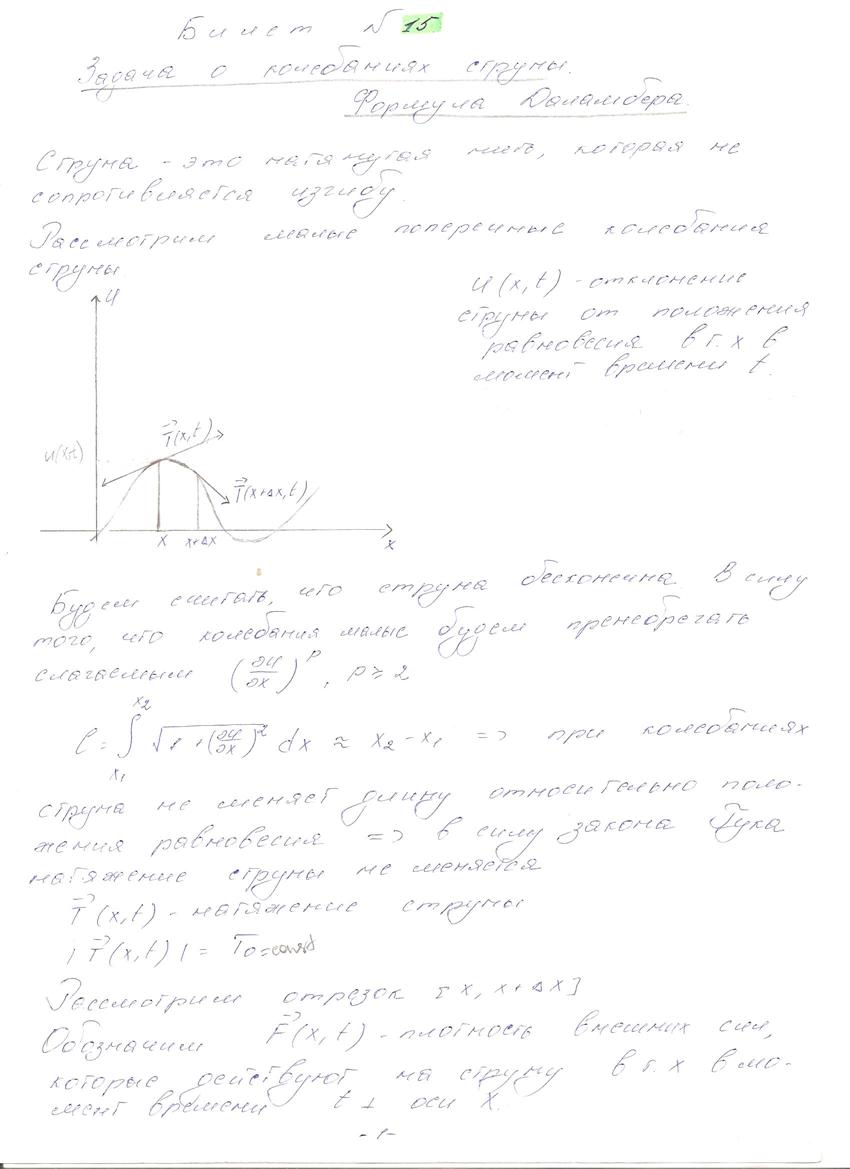 Билет № 15
Задача о колебаниях струны.
Формула Даламбера.
Струна - это натянутая нить, которая не
сопротивляется изгибу.
Рассмотрим малые поперечные колебания
струны
u(x,t) - отклонение
струны от положения
равновесия в т. x в
момент времени t.
u
T⃗(x,t)
u(x,t)
T⃗(x+Δx,t)
x x+Δx x
Будем считать, что струна бесконечна. В силу
того, что колебания малые будем пренебрегать
слагаемым (∂u/∂x)^p, p ≥ 2
l = ∫_{x₁}^{x₂} √(1+(∂u/∂x)²) dx ≈ x₂-x₁ => при колебаниях
струна не меняет длину относительно поло-
жения равновесия => в силу закона Гука
натяжение струны не меняется
T⃗(x,t) - натяжение струны
|T⃗(x,t)| = T₀=const
Рассмотрим отрезок [x, x+Δx]
Обозначим F⃗(x,t) - плотность внешних сил,
которые действуют на струну в т. x в мо-
мент времени t ⊥ оси X.
-1-